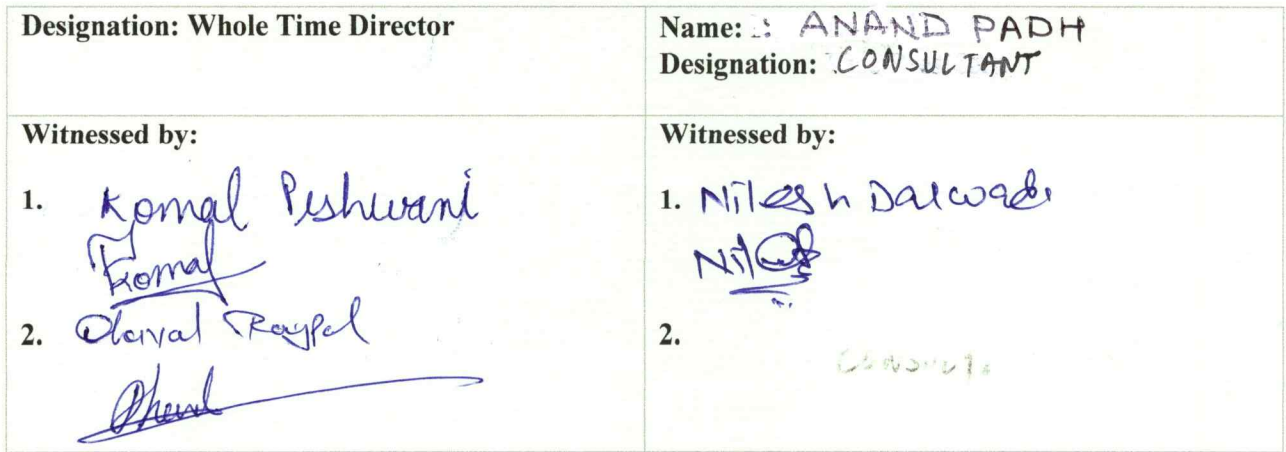 Designation: Whole Time Director
Name: : ANAND PADH
Designation: CONSULTANT
Witnessed by:
1. Komal Peshwani
Komal
2. Raypal
Witnessed by:
1. Nilesh Dalwadi
2.